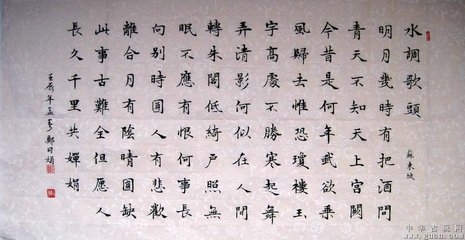 水調歌頭
蘇東坡
明月幾時有把酒問
青天不知天上宮闕
今昔是何年武欲乘
風歸去惟恐瓊樓玉
宇高處不勝寒起舞
弄清影何似在人間
轉朱閣低綺戶照無
眠不應有恨何事長
向別時圓人有悲歡
離合月有陰晴圓缺
此事古難全但愿人
長久千里共嬋娟
壬辰年孟春鄭
中华古玩网
www.gucn.com